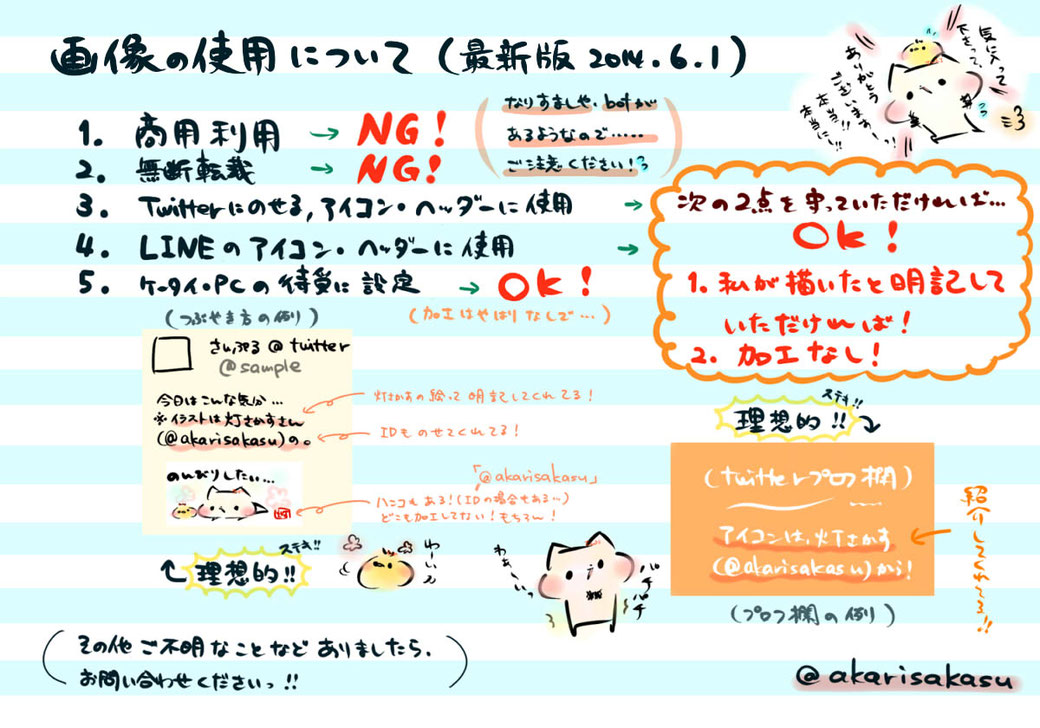 画像の使用について (最新版 2014.6.1)
気に入って
下さって、
ありがとう
ございます〜!
本当!!
本当に!!
1. 商用利用 → NG!
(なりすましや、botが
あるようなので……
ご注意ください!)
2. 無断転載 → NG!
3. Twitterにのせる,アイコン・ヘッダーに使用 →
4. LINEのアイコン・ヘッダーに使用 →
次の2点を守っていただければ…
Ok!
1. 私が描いたと明記して
いただければ!
2. 加工なし!
5. ケータイ・PCの待受に設定 → Ok!
(加工はやはりなしで…)
(つぶやき方の例り)
さんぷる@twitter
@sample
今日はこんな気分…
※イラストは灯さかすさん
(@akarisakasu)の。
のんびりしたい…
灯さかすの絵って明記してくれてる!
IDものせてくれてる!
「@akarisakasu」
ハンコもある!(IDの場合もある…)
どこも加工してない!もちろん!
ステキ!!
理想的!!
わーい
わぁーい
パチパチ
ステキ!!
理想的!!
(twitterプロフ欄)
アイコンは、灯さかす
(@akarisakasu)から!
紹介してくれてる!!
(プロフ欄の例り)
(その他ご不明なことなどありましたら、
お問い合わせくださいっ!!)
@akarisakasu